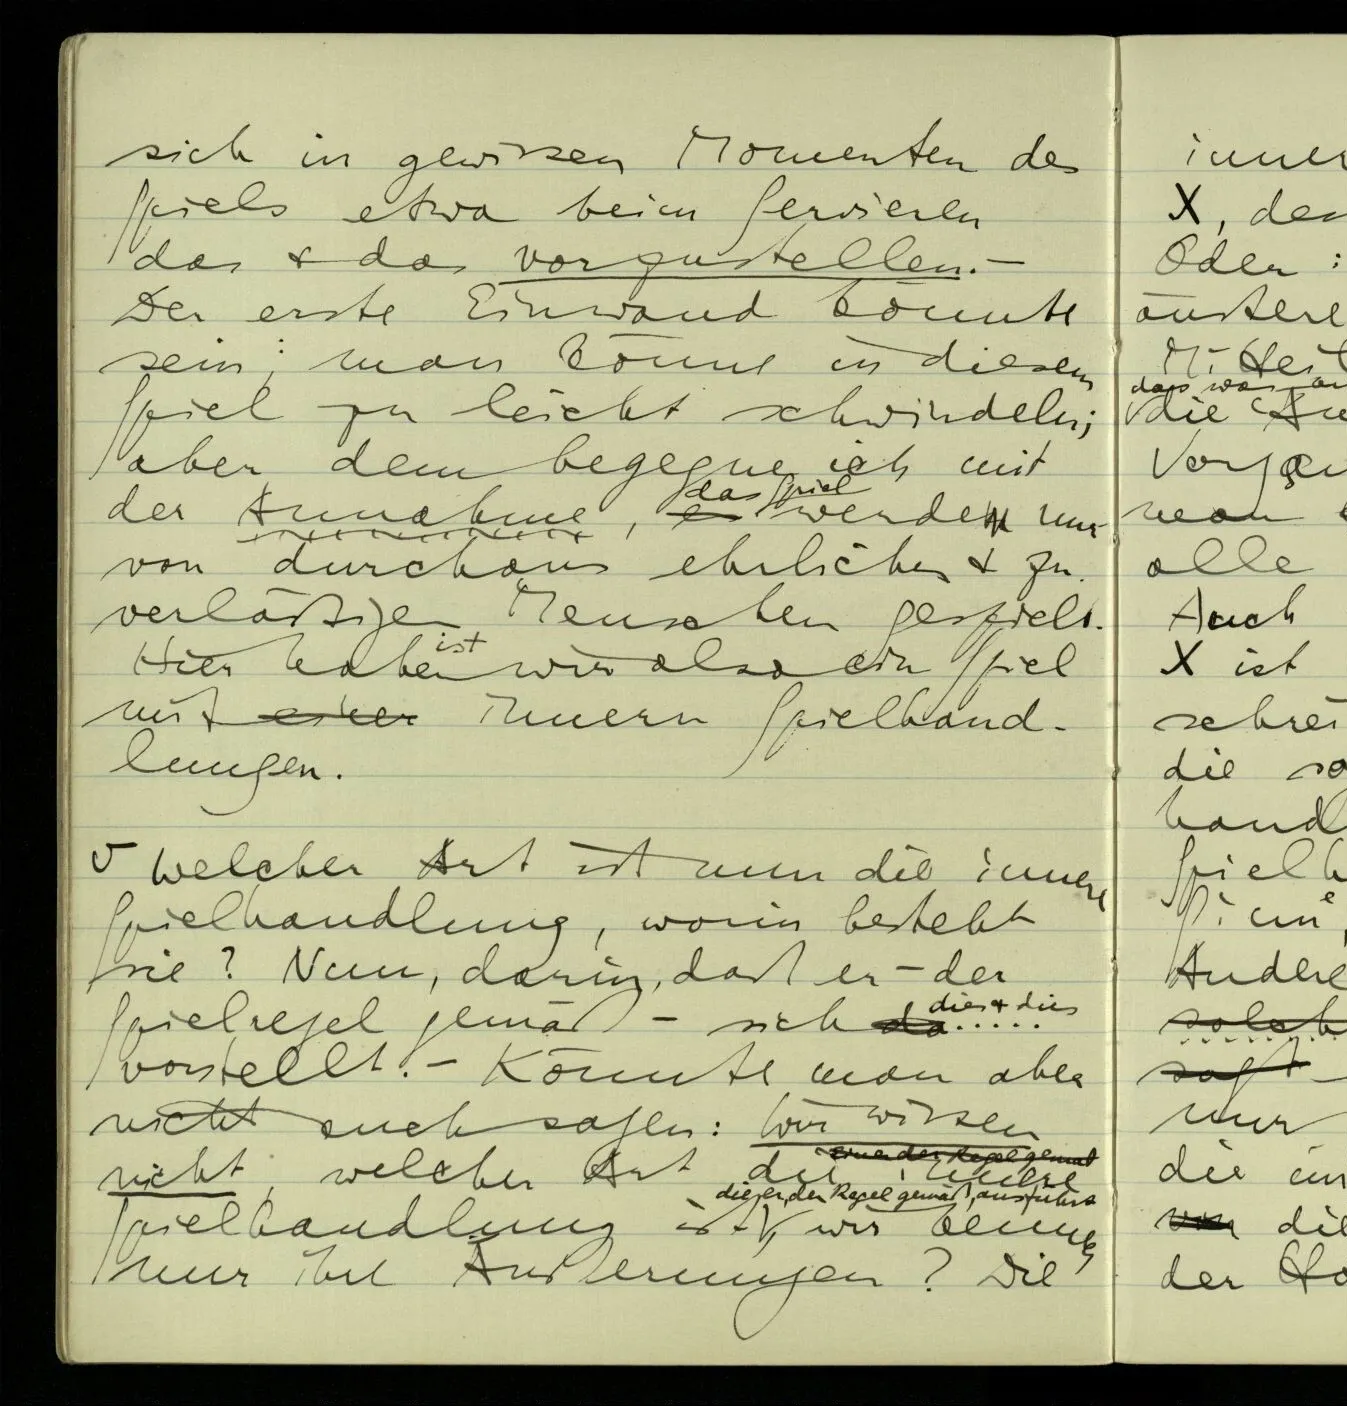 sich in gewissen Momenten des
Spiels etwa beim Servieren
das & das vorzustellen. –
Der erste Einwand könnte
sein: man könne in diesem
Spiel zu leicht schwindeln;
aber dem begegne ich mit
das Spiel
der Annahme, es werden nur
von durchaus ehrlichen & zu-
verläßigen Menschen gespielt.
ist
Hier haben wir also ein Spiel
mit einer innern Spielhand-
lungen.
∨ Welcher Art ist nun die innere
Spielhandlung, worin besteht
sie? Nun, darin, daß er – der
dies & dies
Spielregel gemäß – sich da.....
vorstellt. – Könnte man aber
nicht auch sagen: Wir wissen
nicht, welcher Art die innere
die er, der Regel gemäß, ausführt
Spielhandlung ist, wir kennen
nur ihre Äußerungen? Die
inner
X, der
Oder:
äußere
daß was
die
man
alle
Auch
X ist
schrei
die so
hand
Spielh
Andere
solch
sagt –
nur
die in
von die
der